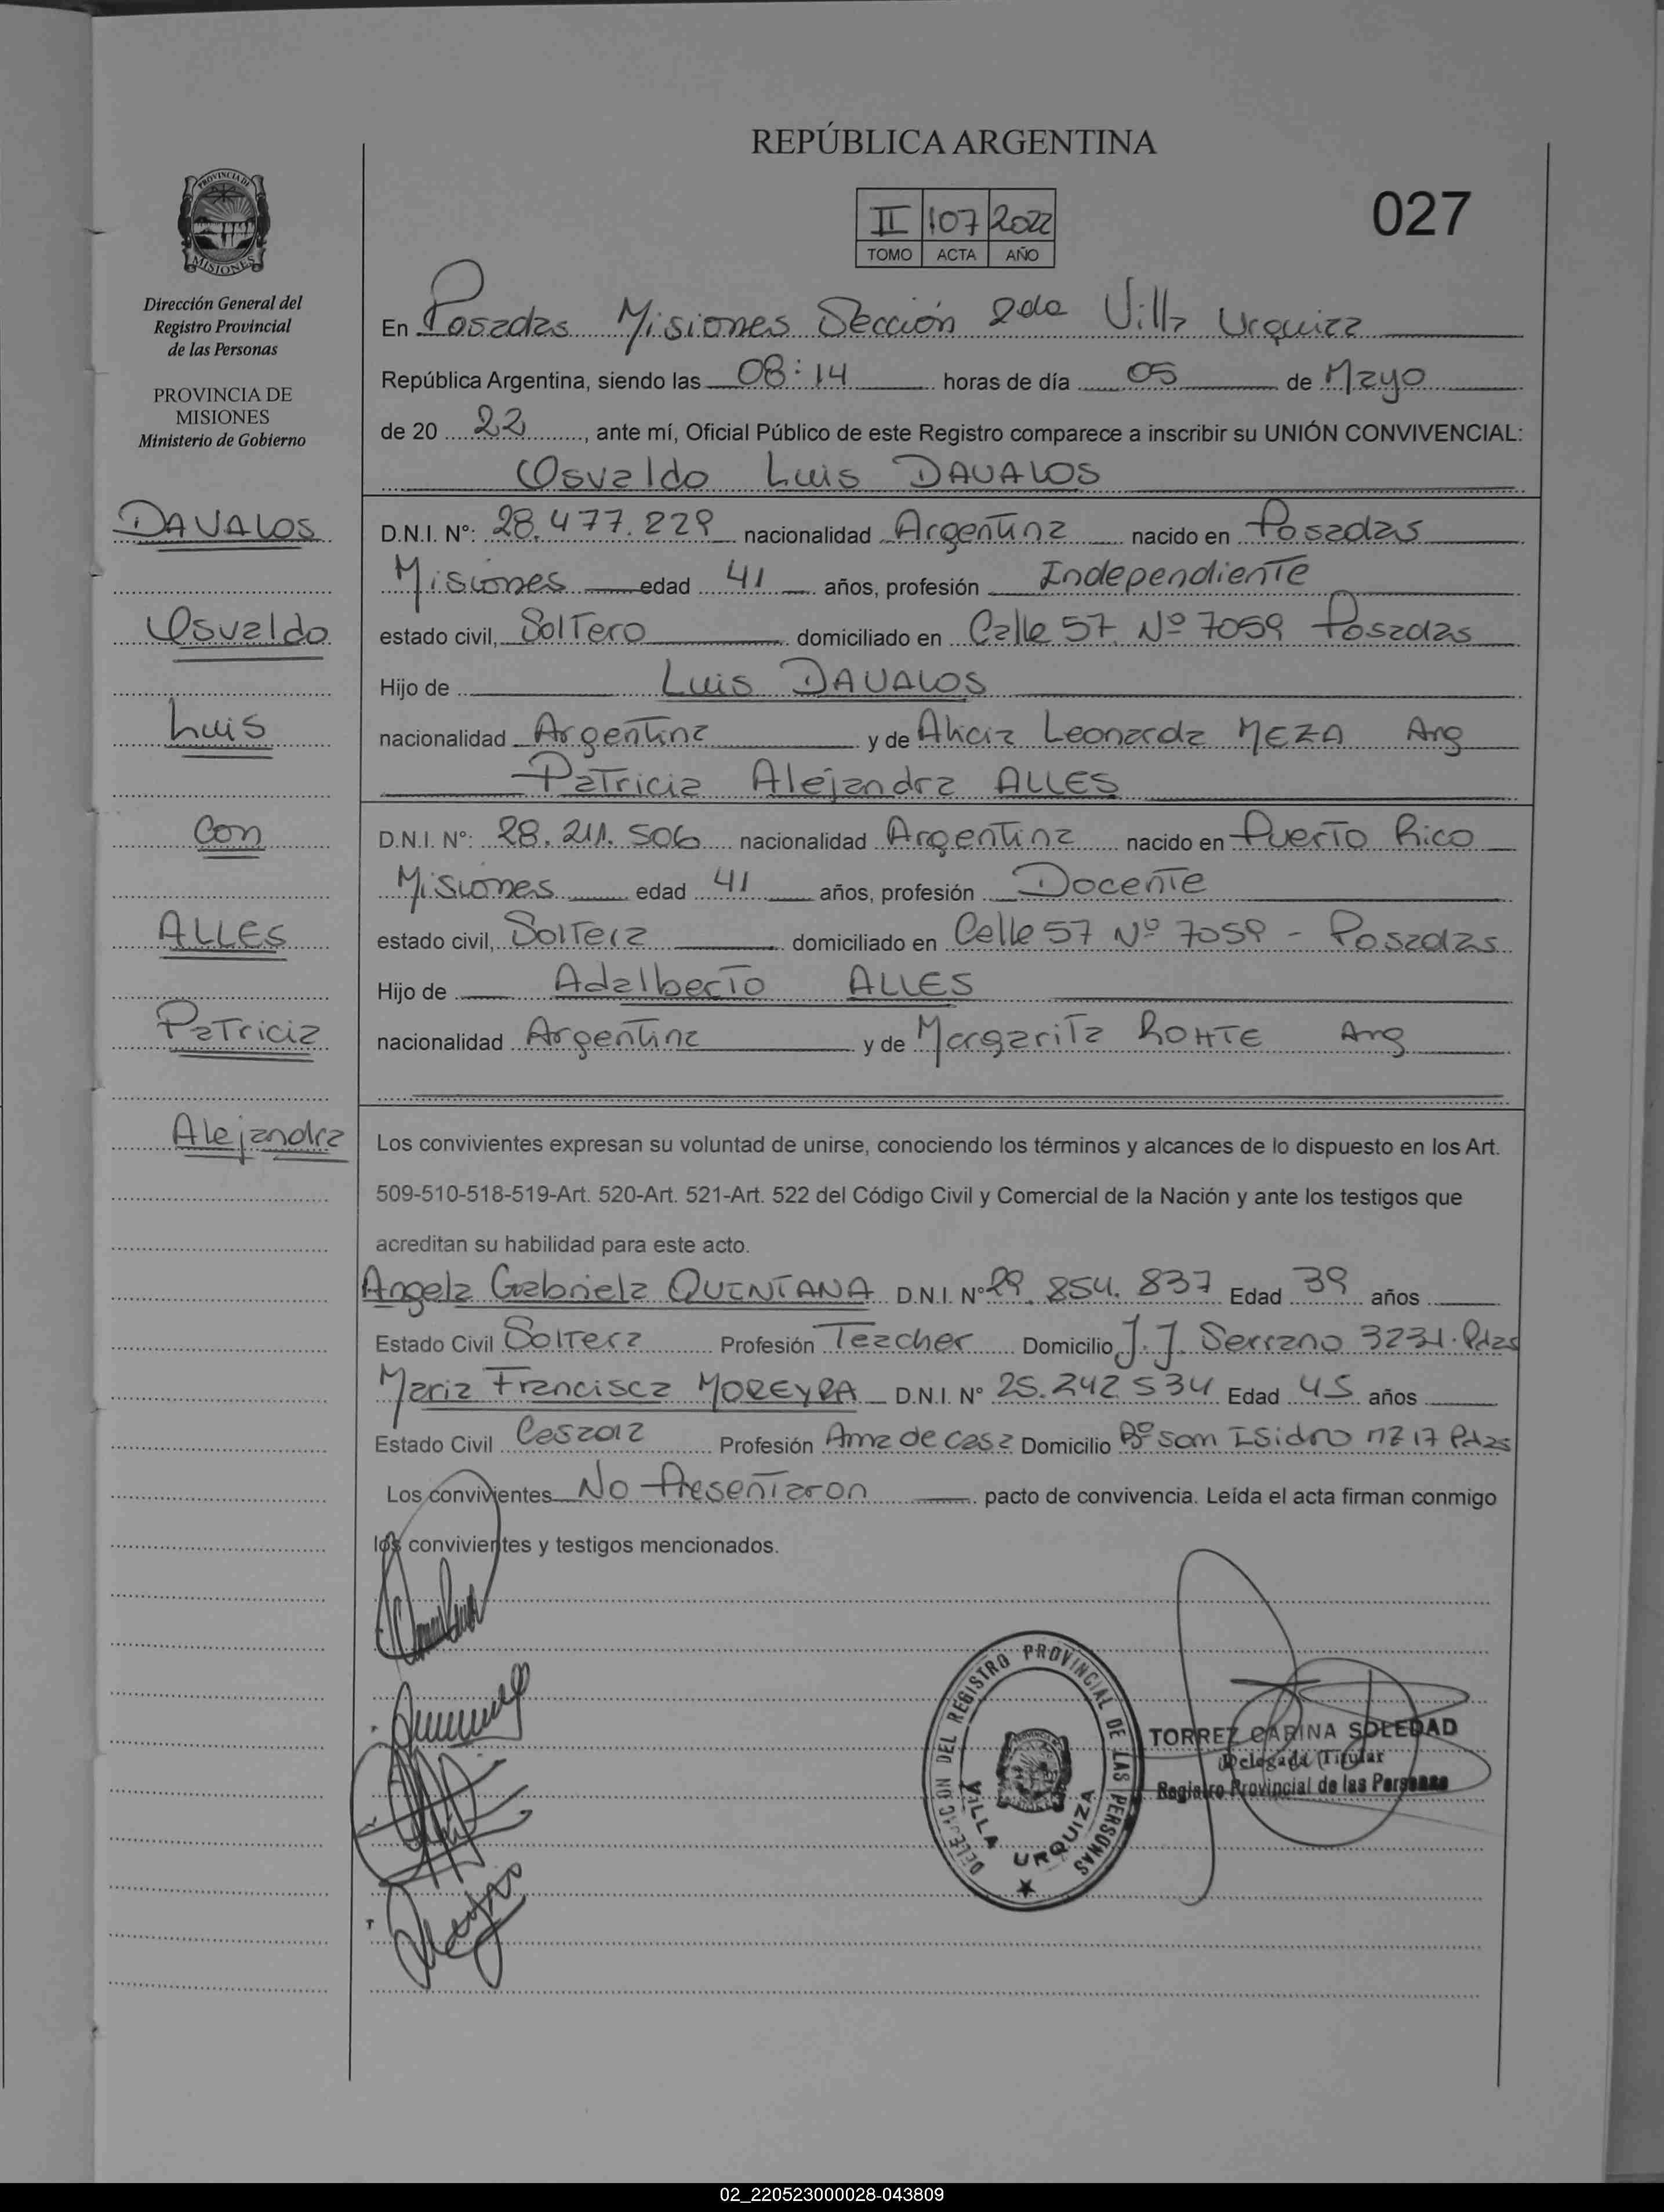 REPÚBLICA ARGENTINA
027
II 107 2022
TOMO ACTA AÑO
PROVINCIA DE
MISIONES
Dirección General del
Registro Provincial
de las Personas
PROVINCIA DE
MISIONES
Ministerio de Gobierno
DAVALOS
Osvaldo
Luis
Con
ALLES
Patricia
Alejandra
En Posadas Misiones Sección 2da Villa Urquiza
República Argentina, siendo las 08:14 horas de día 05 de Mayo
de 20 22, ante mí, Oficial Público de este Registro comparece a inscribir su UNIÓN CONVIVENCIAL:
Osvaldo Luis DAVALOS
D.N.I. N°: 28.477.229 nacionalidad Argentina nacido en Posadas
Misiones edad 41 años, profesión Independiente
estado civil, Soltero domiciliado en Calle 57 Nº 7059 Posadas
Hijo de Luis DAVALOS
nacionalidad Argentina y de Alicia Leonarda MEZA Arg
Patricia Alejandra ALLES
D.N.I. N°: 28.211.506 nacionalidad Argentina nacido en Puerto Rico
Misiones edad 41 años, profesión Docente
estado civil, Soltera domiciliado en Calle 57 Nº 7059 - Posadas
Hijo de Adalberto ALLES
nacionalidad Argentina y de Margarita ROHTE Arg
Los convivientes expresan su voluntad de unirse, conociendo los términos y alcances de lo dispuesto en los Art.
509-510-518-519-Art. 520-Art. 521-Art. 522 del Código Civil y Comercial de la Nación y ante los testigos que
acreditan su habilidad para este acto.
Angela Gabriela QUINTANA D.N.I. N° 29.854.837 Edad 39 años
Estado Civil Soltera Profesión Teacher Domicilio J.J. Serrano 3231. Pdas
Maria Francisca MOREYRA D.N.I. N° 25.242534 Edad 45 años
Estado Civil Casada Profesión Ama de casa Domicilio Bº San Isidro MZ 17 Pdas
Los convivientes No Presentaron pacto de convivencia. Leída el acta firman conmigo
los convivientes y testigos mencionados.
DELEGACION DEL REGISTRO PROVINCIAL DE LAS PERSONAS
VILLA URQUIZA
TORREZ CARINA SOLEDAD
Delegada Titular
Registro Provincial de las Personas
02_220523000028-043809